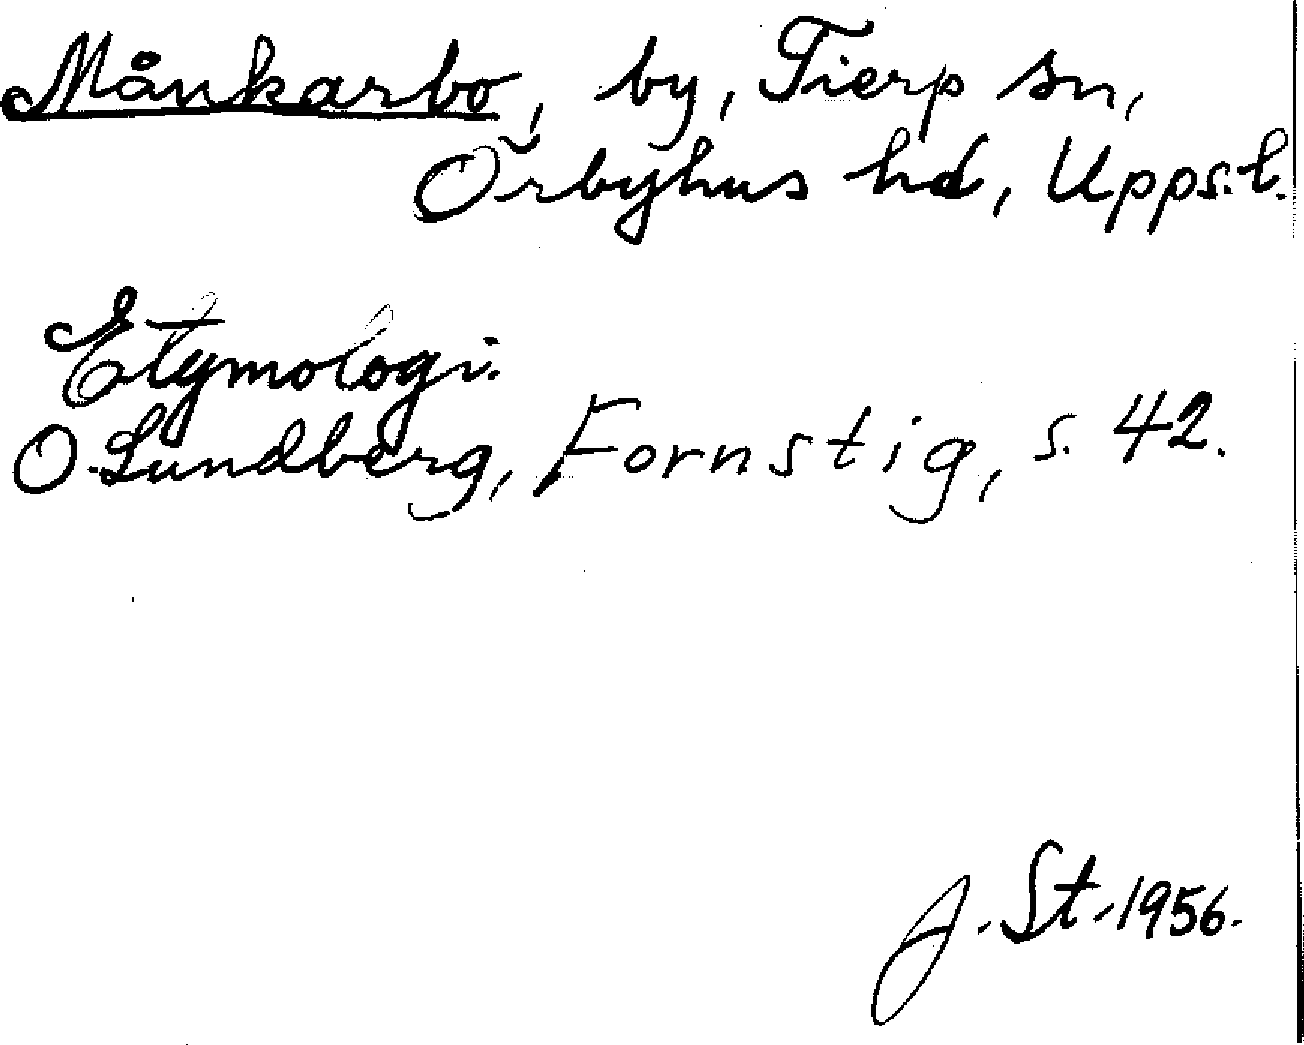 Månkarbo, by, Tierp sn,
Örbyhus hd, Upps. l.
Etymologi.
O. Lundberg, Fornstig, s. 42.
J. St. 1956.